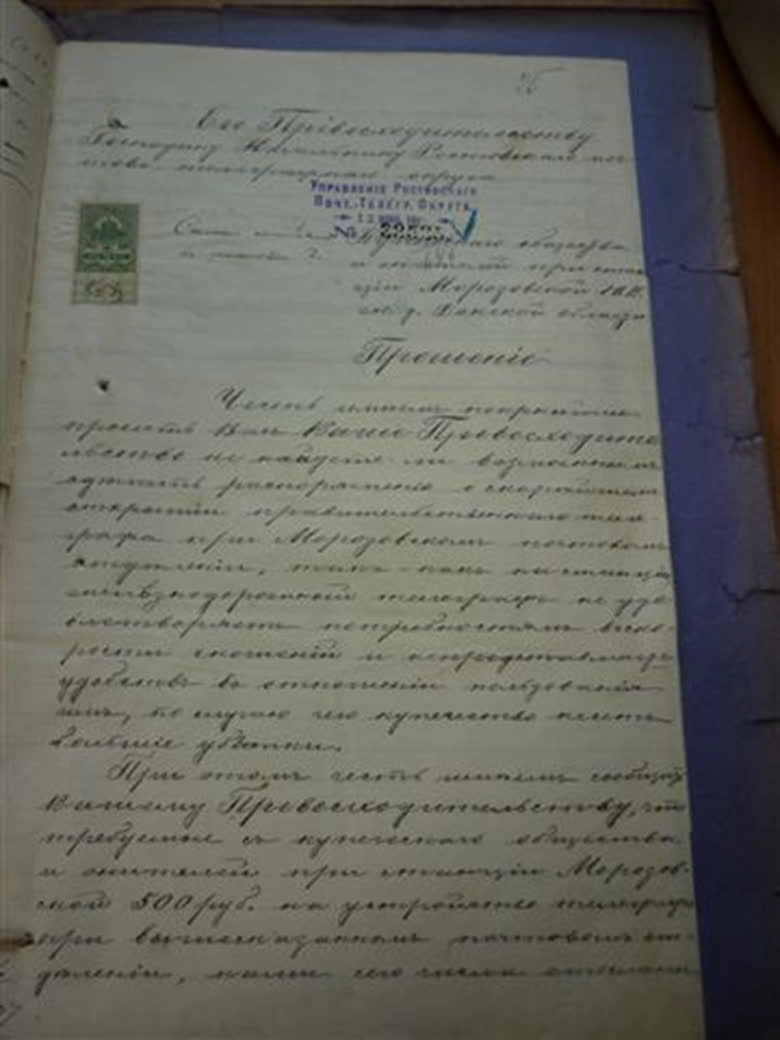 Его Превосходительству
Господину Начальнику Ростовскаго поч-
тово телеграфнаго округа
Управленіе Ростовскаго
Почт.-Телегр. Округа
№
общества
и жителей при стан
ціи Морозовской
Донской области
Прошеніе
Честь имѣемъ покорнѣйше
просить Васъ Ваше Превосходите
льство не найдете ли возможнымъ
сдѣлать распоряженіе о скорѣйшемъ
открытіи правительственнаго теле-
графа при Морозовскомъ почтовомъ
отдѣленіи, такъ-какъ на станціи
желѣзнодорожный телеграфъ не удо
влетворяетъ потребностямъ
сношеній и
удобствъ въ отношеніи пользованія
имъ, по случаю чего купечество несетъ
большіе убытки.
При этомъ честь имѣемъ сообщить
Вашему Превосходительству, что
требуемые съ купеческаго общества
и жителей при станціи Морозов-
ской 500 руб. на устройство телеграфа
при вышесказанномъ почтовомъ от-
дѣленіи, нами сего числа